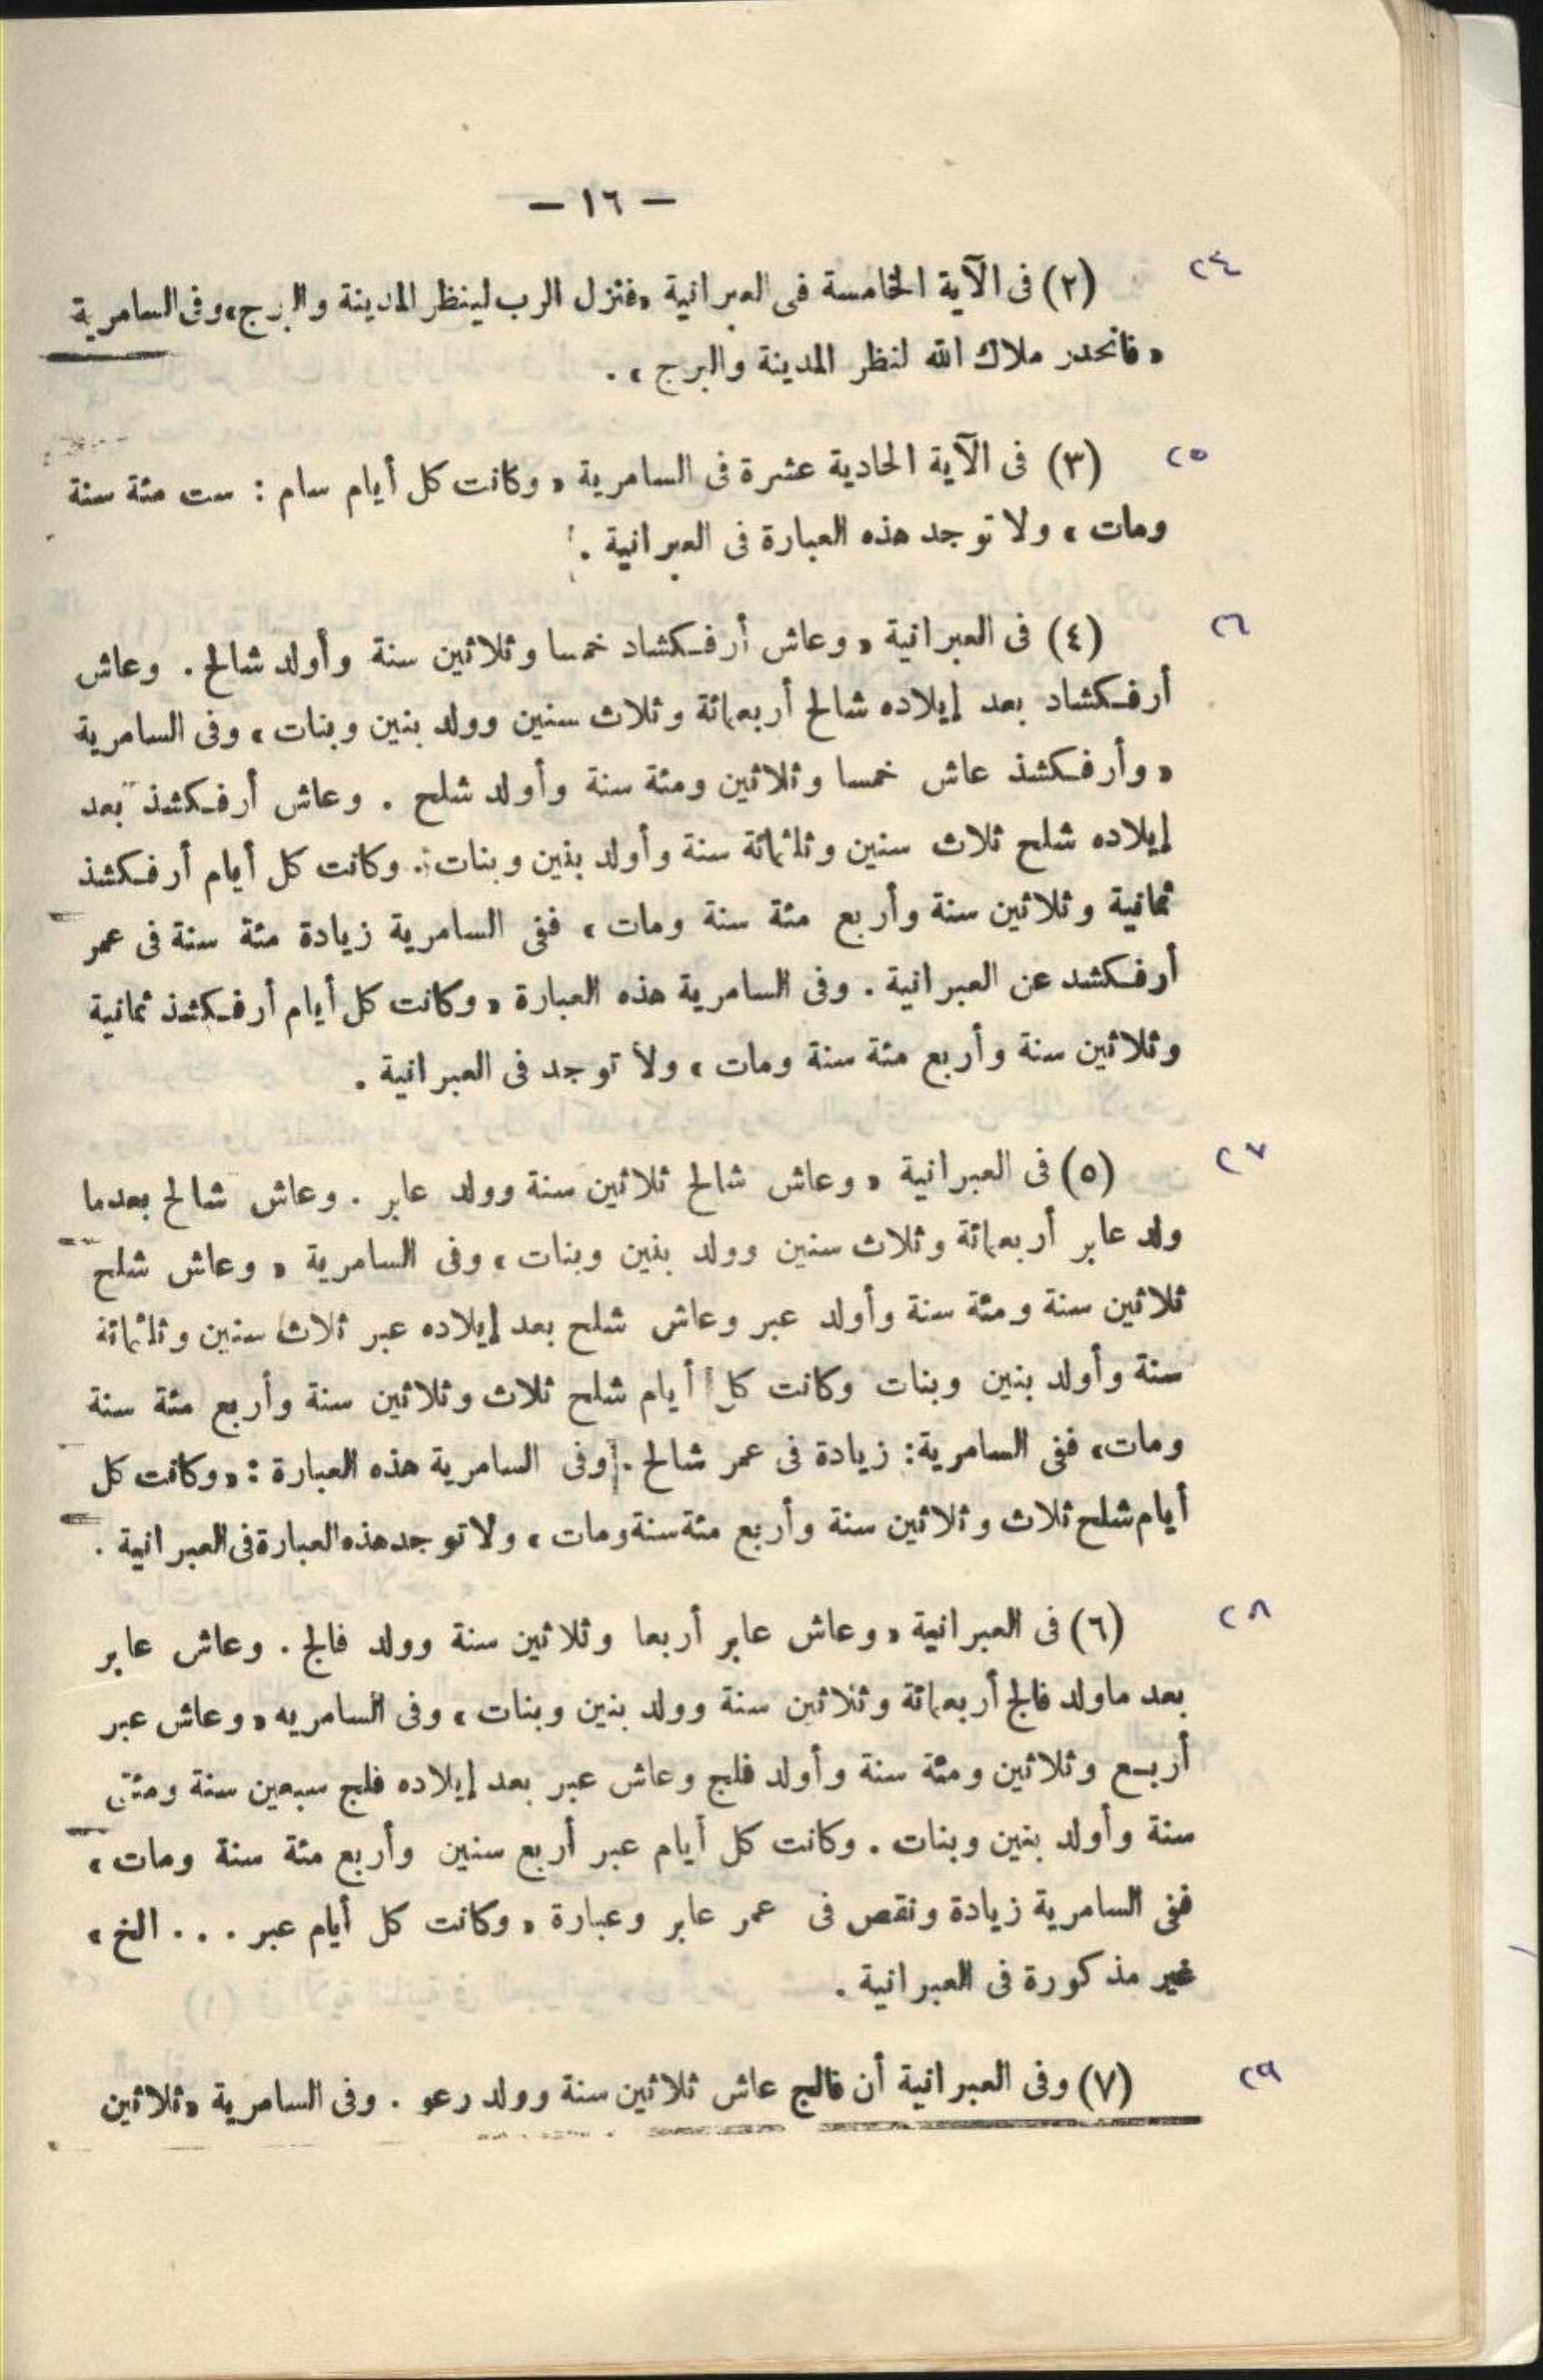 — ١٦ —
٢٤
(٢) فى الآية الخامسة فى العبرانية «فنزل الرب لينظر المدينة والبرج» وفى السامرية
« فانحدر ملاك الله لنظر المدينة والبرج » .
٢٥
(٣) فى الآية الحادية عشرة فى السامرية « وكانت كل أيام سام : ست مئة سنة
ومات » ولا توجد هذه العبارة فى العبرانية .
٢٦
(٤) فى العبرانية « وعاش أرفـكشاد خمسا وثلاثين سنة وأولد شالح . وعاش
أرفـكشاد بعد إيلاده شالح أربعمائة وثلاث سنين وولد بنين وبنات » وفى السامرية
« وأرفـكشذ عاش خمسا وثلاثين ومئة سنة وأولد شلح . وعاش أرفـكشذ بعد
إيلاده شلح ثلاث سنين وثلثمائة سنة وأولد بنين وبنات . وكانت كل أيام أرفـكشذ
ثمانية وثلاثين سنة وأربع مئة سنة ومات » ففى السامرية زيادة مئة سنة فى عمر
أرفـكشد عن العبرانية . وفى السامرية هذه العبارة « وكانت كل أيام أرفـكشذ ثمانية
وثلاثين سنة وأربع مئة سنة ومات » ولا توجد فى العبرانية .
٢٧
(٥) فى العبرانية « وعاش شالح ثلاثين سنة وولد عابر . وعاش شالح بعدما
ولد عابر أربعمائة وثلاث سنين وولد بنين وبنات » وفى السامرية « وعاش شلح
ثلاثين سنة ومئة سنة وأولد عبر وعاش شلح بعد إيلاده عبر ثلاث سنين وثلثمائة
سنة وأولد بنين وبنات وكانت كل أيام شلح ثلاث وثلاثين سنة وأربع مئة سنة
ومات» ففى السامرية: زيادة فى عمر شالح . وفى السامرية هذه العبارة : «وكانت كل
أيام شلح ثلاث وثلاثين سنة وأربع مئة سنة ومات » ولا توجد هذه العبارة فى العبرانية .
٢٨
(٦) فى العبرانية « وعاش عابر أربعا وثلاثين سنة وولد فالج . وعاش عابر
بعد ماولد فالج أربعمائة وثلاثين سنة وولد بنين وبنات » وفى السامريه « وعاش عبر
أربـع وثلاثين ومئة سنة وأولد فلج وعاش عبر بعد إيلاده فلج سبعين سنة ومئتى
سنة وأولد بنين وبنات . وكانت كل أيام عبر أربع سنين وأربع مئة سنة ومات »
ففى السامرية زيادة ونقص فى عمر عابر وعبارة « وكانت كل أيام عبر . . . الخ »
غير مذكورة فى العبرانية .
٢٩
(٧) وفى العبرانية أن فالج عاش ثلاثين سنة وولد رعو . وفى السامرية «ثلاثين